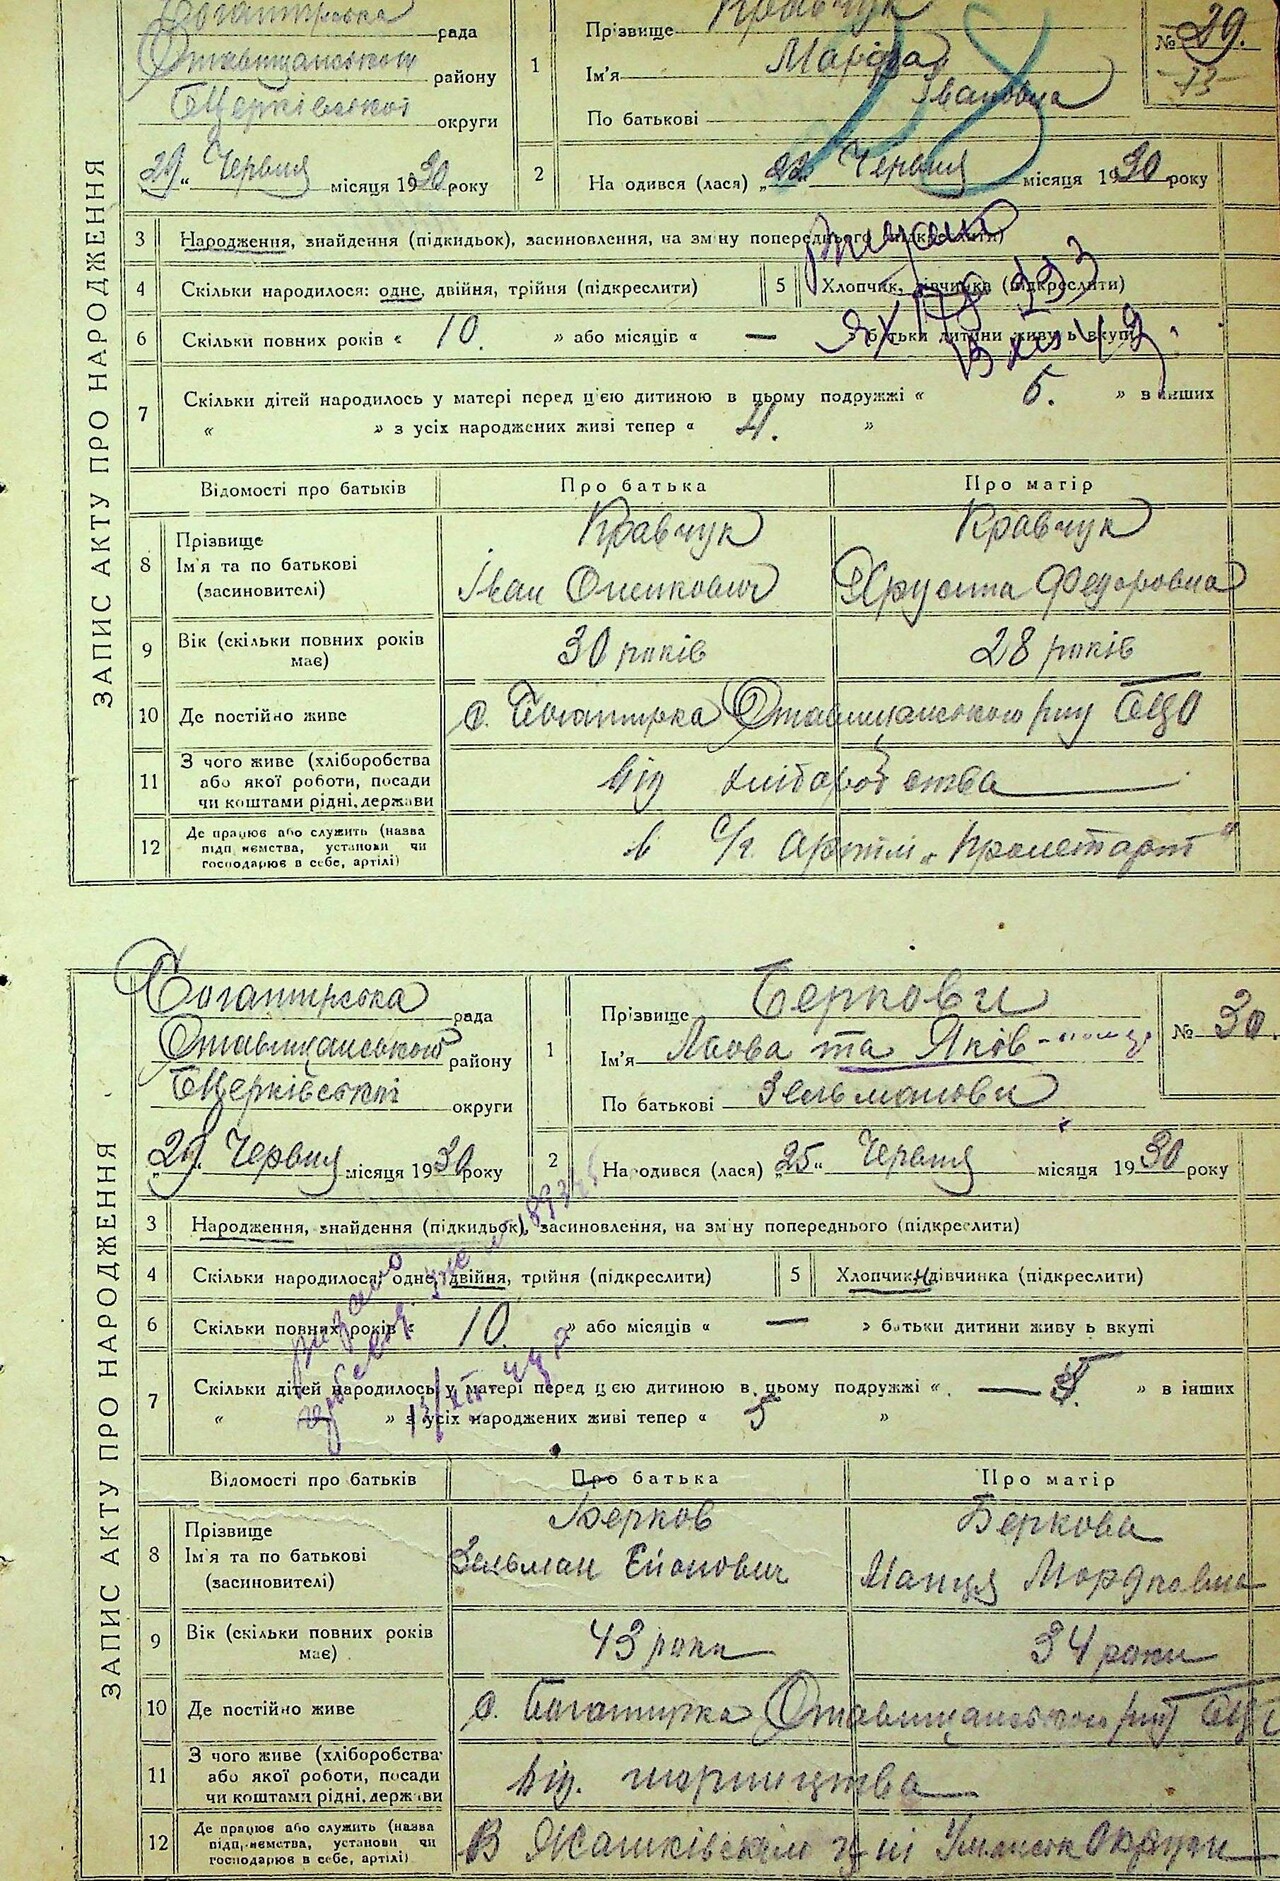 ЗАПИС АКТУ ПРО НАРОДЖЕННЯ
Богатирська рада
Ставищанського району
БЦерківської округи
„29“ Червня місяця 1930 року
1 Прізвище Кравчук
Ім'я Марія
По батькові Івановна
№ 29.
13
28
2 На одився (лася) „22“ Червня місяця 1930 року
3 Народження, знайдення (підкидьок), засиновлення, на зміну попереднього (підкреслити)
4 Скільки народилося: одне, двійня, трійня (підкреслити)
5 Хлопчик, дівчинка (підкреслити)
6 Скільки повних років « 10. » або місяців « — » батьки дитини живуть вкупі
7 Скільки дітей народилось у матері перед цією дитиною в цьому подружжі « 5. » в інших
« » з усіх народжених живі тепер « 4. »
Відомості про батьків Про батька Про матір
8 Прізвище Кравчук Кравчук
Ім'я та по батькові Іван Оникович Хрусина Федоровна
(засиновителі)
9 Вік (скільки повних років має) 30 років 28 років
10 Де постійно живе с. Богатирка Ставищанського р-ну БЦО
11 З чого живе (хліборобства або якої роботи, посади чи коштами рідні, держави від хліборобства
12 Де працює або служить (назва підп иємства, установи чи господарює в себе, артілі) в с/г. Артілі „Пролетарт“
ЗАПИС АКТУ ПРО НАРОДЖЕННЯ
Богатирська рада
Ставищанського району
БЦерківської округи
„29“ Червня місяця 1930 року
1 Прізвище Беркови
Ім'я та Яків
По батькові Зельманови
№ 30.
2 На одився (лася) „25“ Червня місяця 1930 року
3 Народження, знайдення (підкидьок), засиновлення, на зміну попереднього (підкреслити)
4 Скільки народилося: одне, двійня, трійня (підкреслити)
5 Хлопчик, дівчинка (підкреслити)
6 Скільки повних років « 10. » або місяців « — » батьки дитини живуть вкупі
7 Скільки дітей народилось у матері перед цією дитиною в цьому подружжі « — » в інших
« — » з усіх народжених живі тепер « 5 »
Відомості про батьків Про батька Про матір
8 Прізвище Берков Беркова
Ім'я та по батькові Зельман Манця Мордковна
(засиновителі)
9 Вік (скільки повних років має) 43 роки 34 роки
10 Де постійно живе с. Богатирка Ставищанського р-ну
11 З чого живе (хліборобства або якої роботи, посади чи коштами рідні, держави від.
12 Де працює або служить (назва підп иємства, установи чи господарює в себе, артілі) В Жашківськім Округи